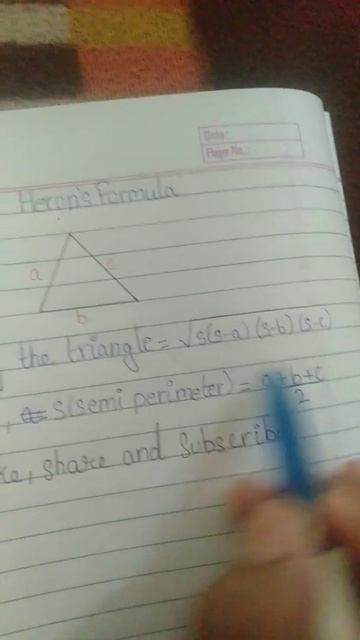 Date:
Page No.:
Heron's Formula
a
c
b
the triangle = √s(s-a)(s-b)(s-c)
, s(semi perimeter) = a+b+c
2
share and Subscribe